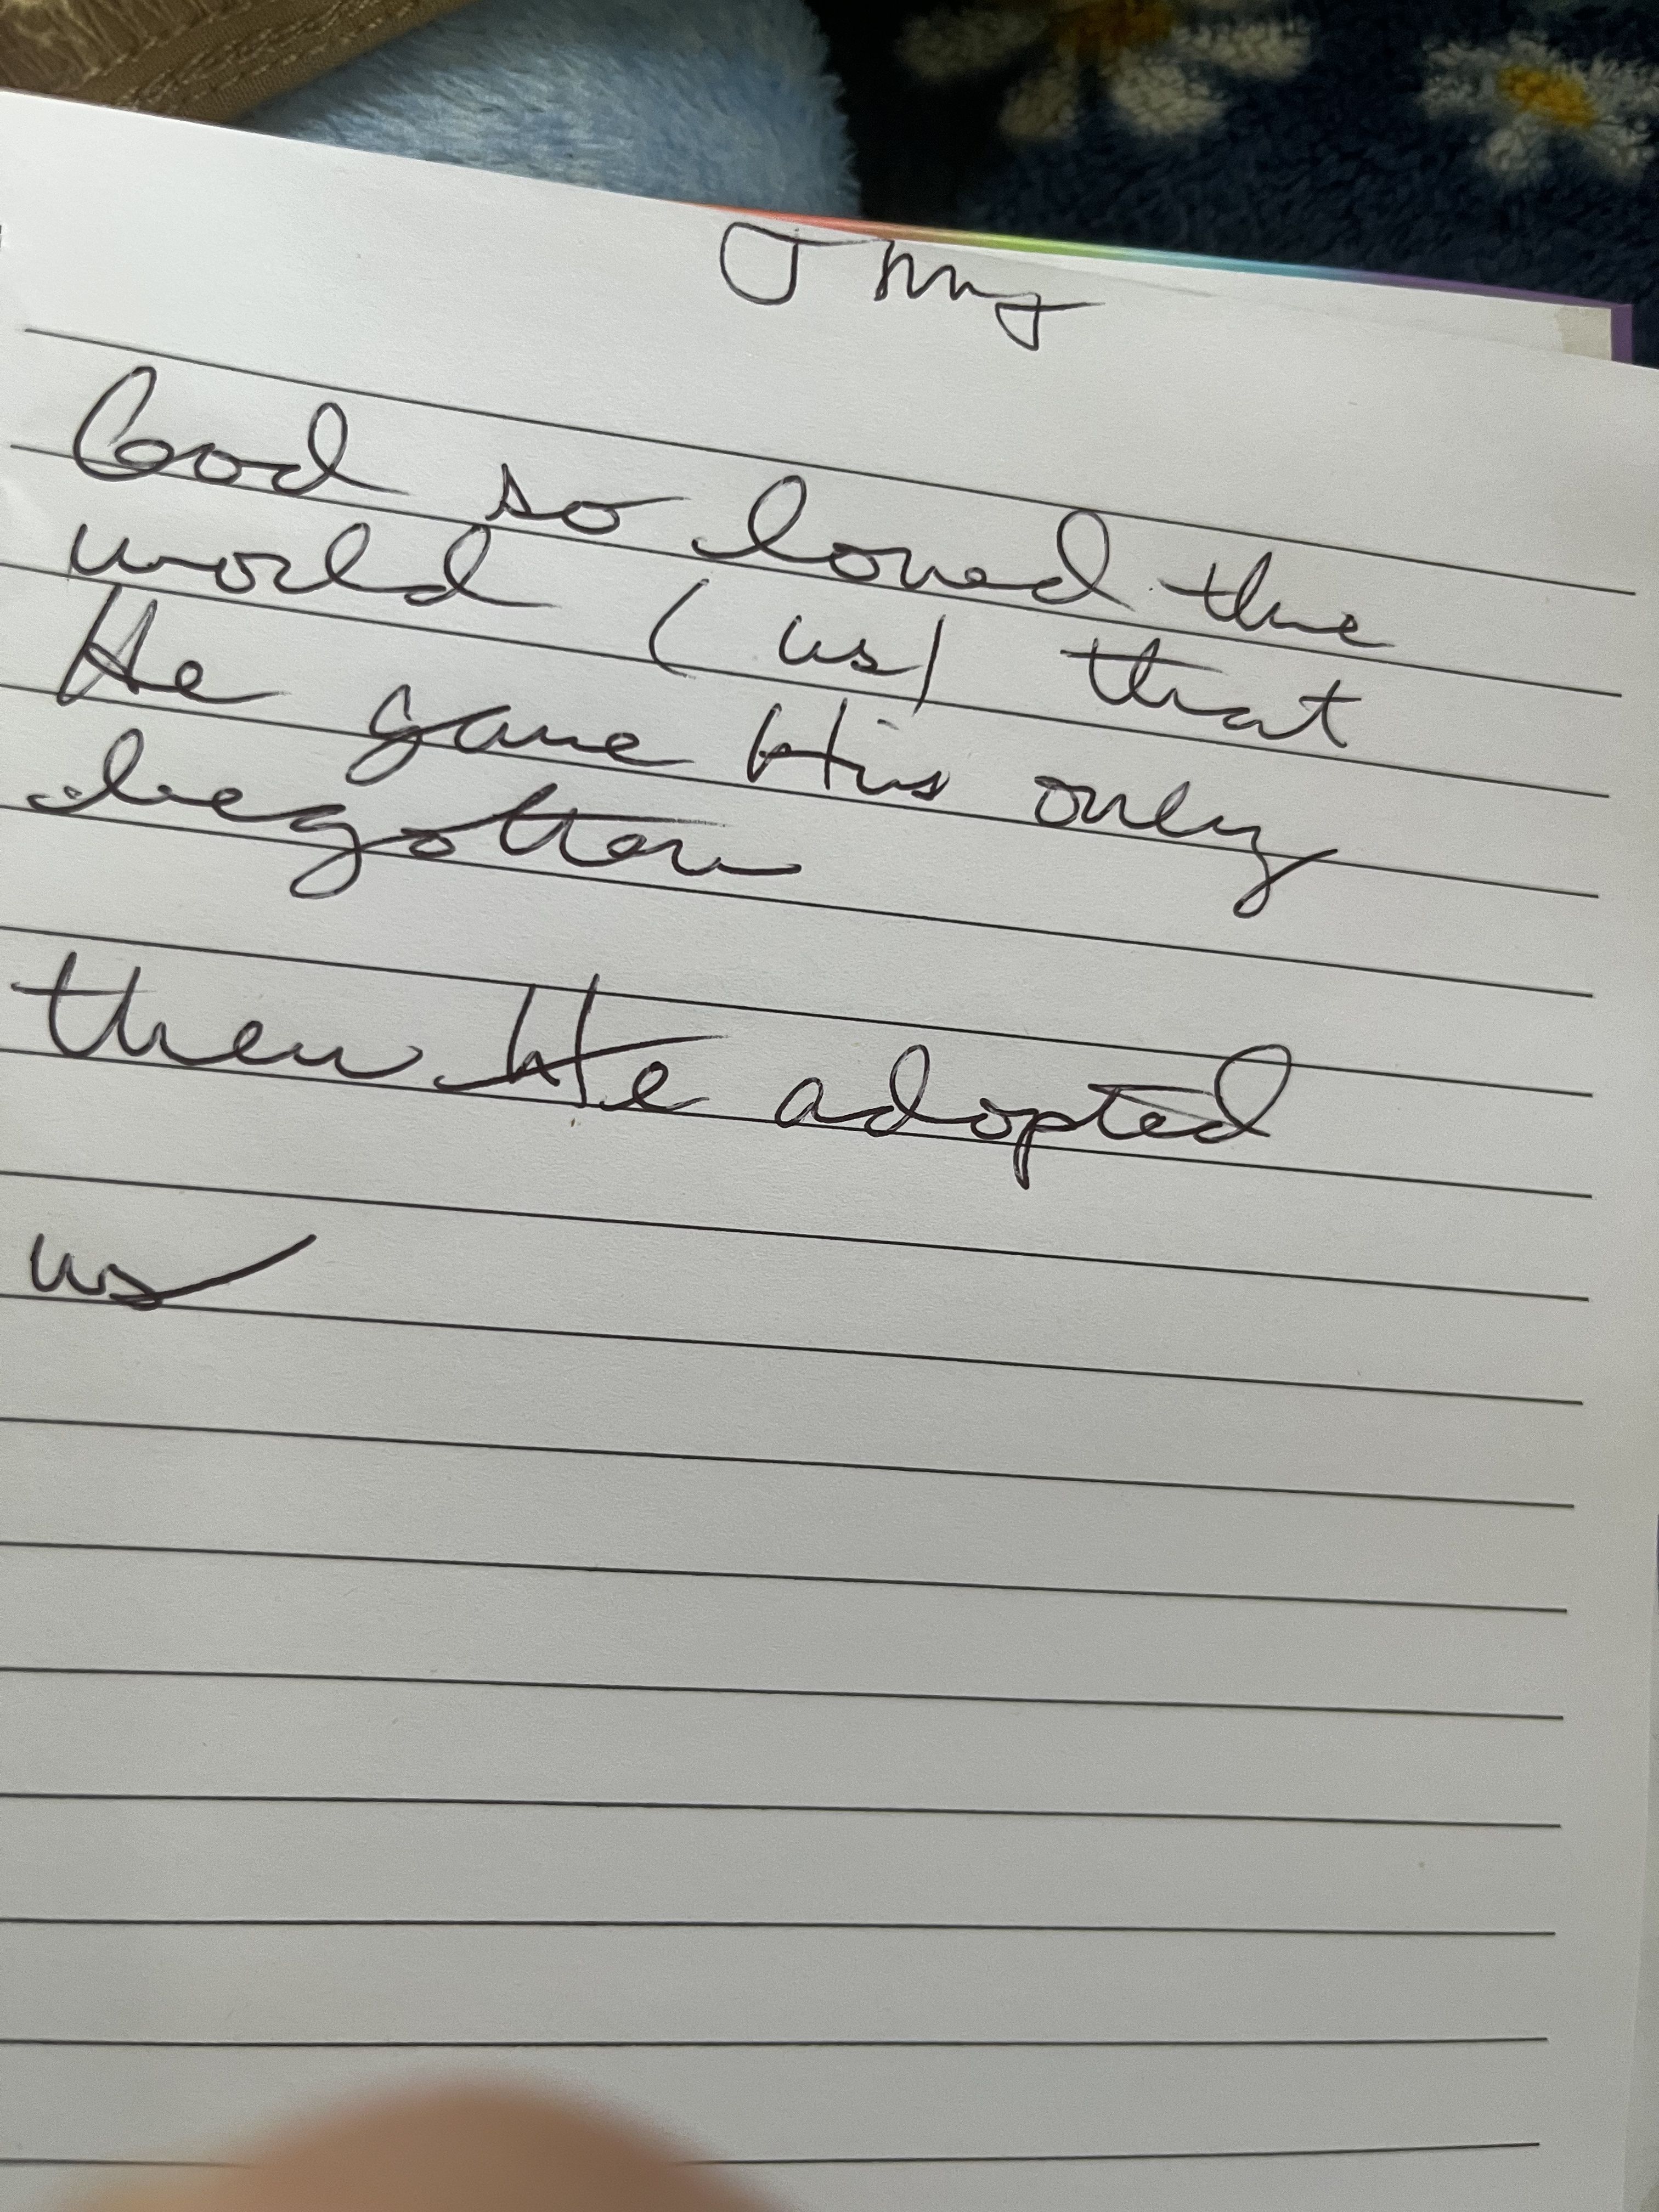 God so loved the
world (us) that
He gave His only
begotten
then He adopted
us